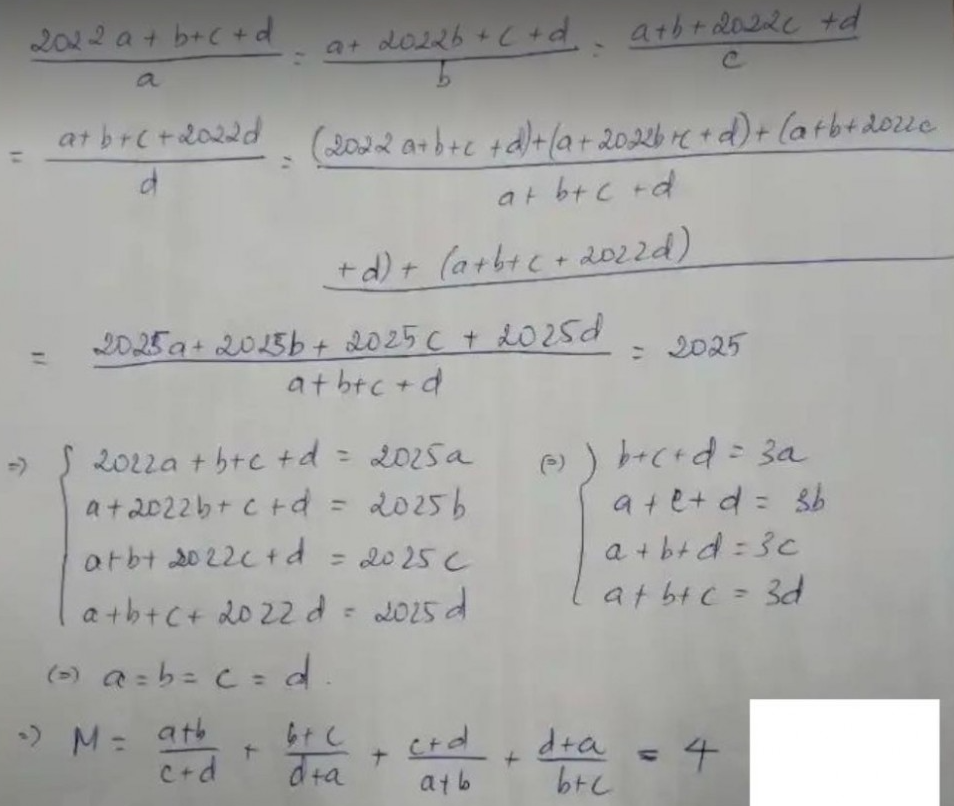 (2022a+b+c+d)/a = (a+2022b+c+d)/b = (a+b+2022c+d)/c
= (a+b+c+2022d)/d = ((2022a+b+c+d)+(a+2022b+c+d)+(a+b+2022c
+d)+(a+b+c+2022d))/(a+b+c+d)
= (2025a+2025b+2025c+2025d)/(a+b+c+d) = 2025
=> { 2022a+b+c+d = 2025a (=) } b+c+d = 3a
a+2022b+c+d = 2025b a+c+d = 3b
a+b+2022c+d = 2025c a+b+d = 3c
a+b+c+2022d = 2025d a+b+c = 3d
(=) a = b = c = d.
=> M = (a+b)/(c+d) + (b+c)/(d+a) + (c+d)/(a+b) + (d+a)/(b+c) = 4